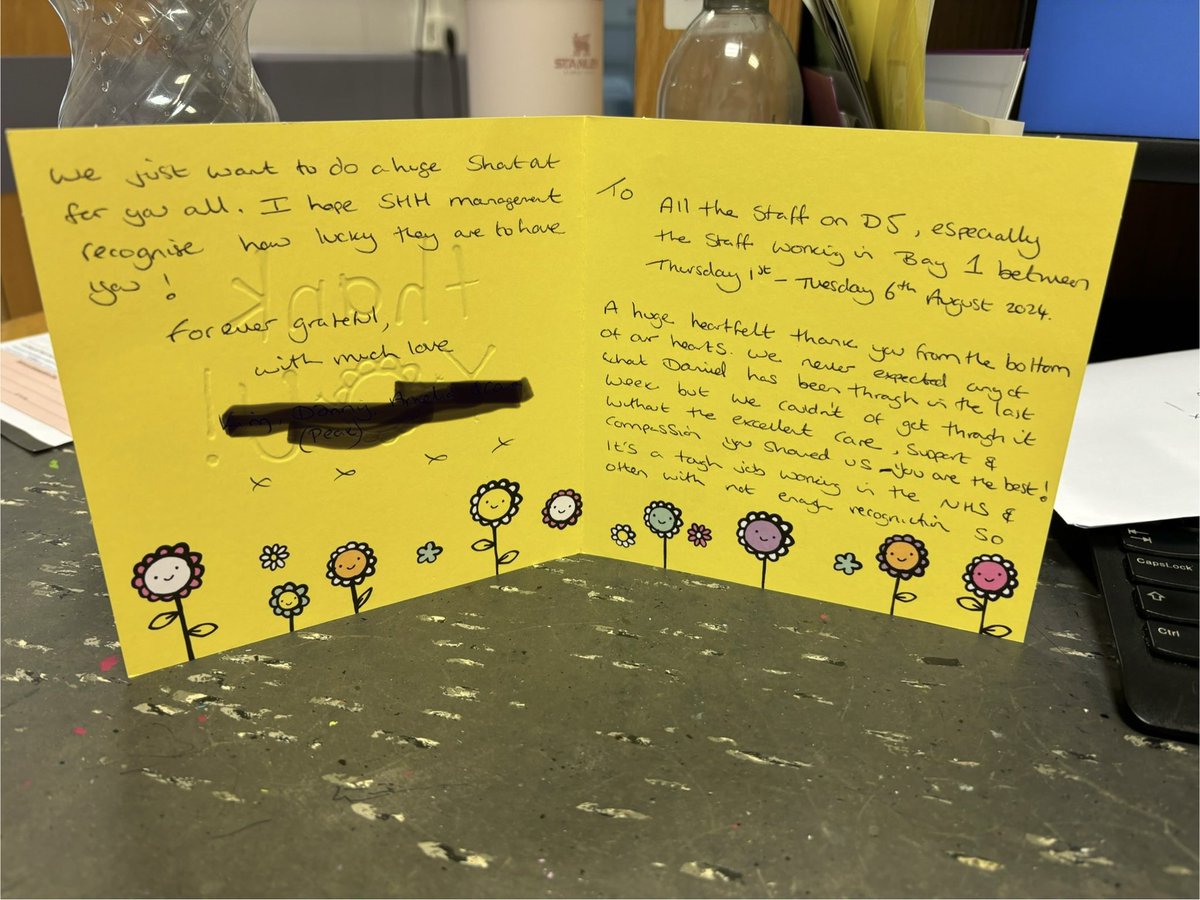 STANLEY
To
All the Staff on D5, especially
the staff working in Bay 1 between
Thursday 1st – Tuesday 6th August 2024.
A huge heartfelt thank you from the bottom
of our hearts. We never expected any of
what Daniel has been through in the last
week but we couldn't of got through it
without the excellent care, support &
compassion you showed us – you are the best!
It's a tough job working in the NHS &
often with not enough recognition so
we just want to do a huge Shout out
for you all. I hope SHH management
recognise how lucky they are to have
you!
thank
you!
Forever grateful,
with much love
x x x x
CapsLock
Ctrl